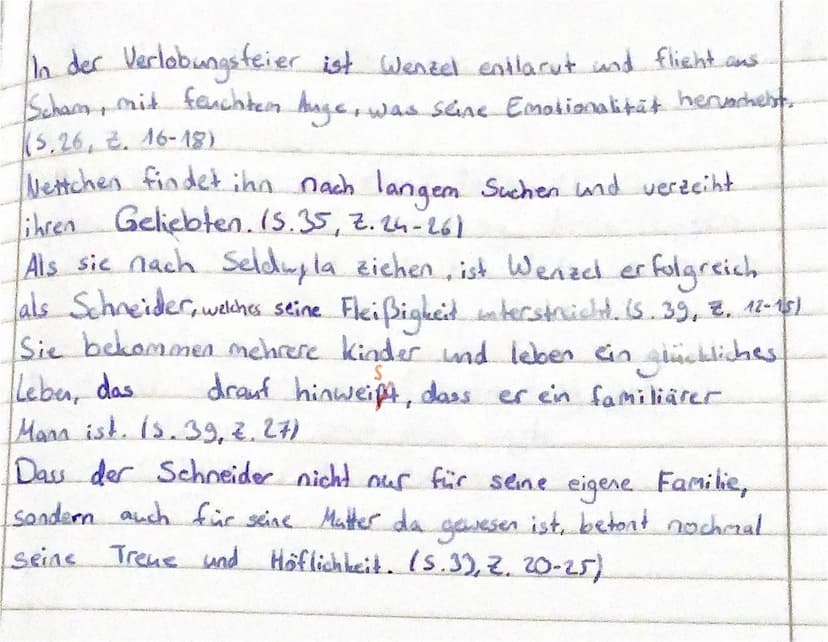 In der Verlobungsfeier ist Wenzel entlarvt und flieht aus
Scham, mit feuchtem Auge, was seine Emotionalität hervorhebt.
(S.26, Z. 16-18)
Nettchen findet ihn nach langem Suchen und verzeiht
ihren Geliebten. (S.35, Z.24-26)
Als sie nach Seldwyla ziehen, ist Wenzel erfolgreich
als Schneider, welches seine Fleißigkeit unterstreicht. (S. 39, Z. 12-15)
Sie bekommen mehrere kinder und leben ein glückliches
Leben, das drauf hinweist, dass er ein familiärer
Mann ist. (S.39, Z. 27)
Dass der Schneider nicht nur für seine eigene Familie,
sondern auch für seine Mutter da gewesen ist, betont nochmal
seine Treue und Höflichkeit. (S. Z. 20-25)